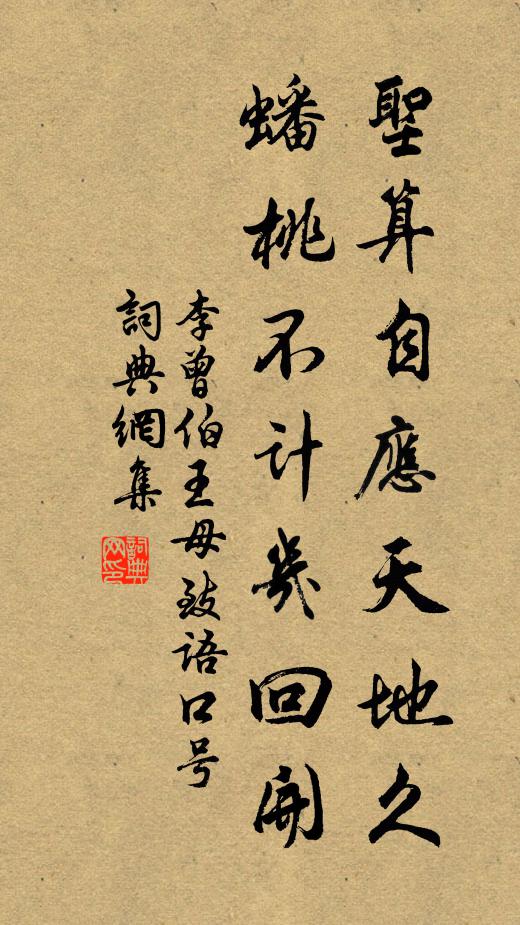 聖算自應天地久
蟠桃不计幾回開
李曾伯王母致語口号
詞典網集
詞典网印